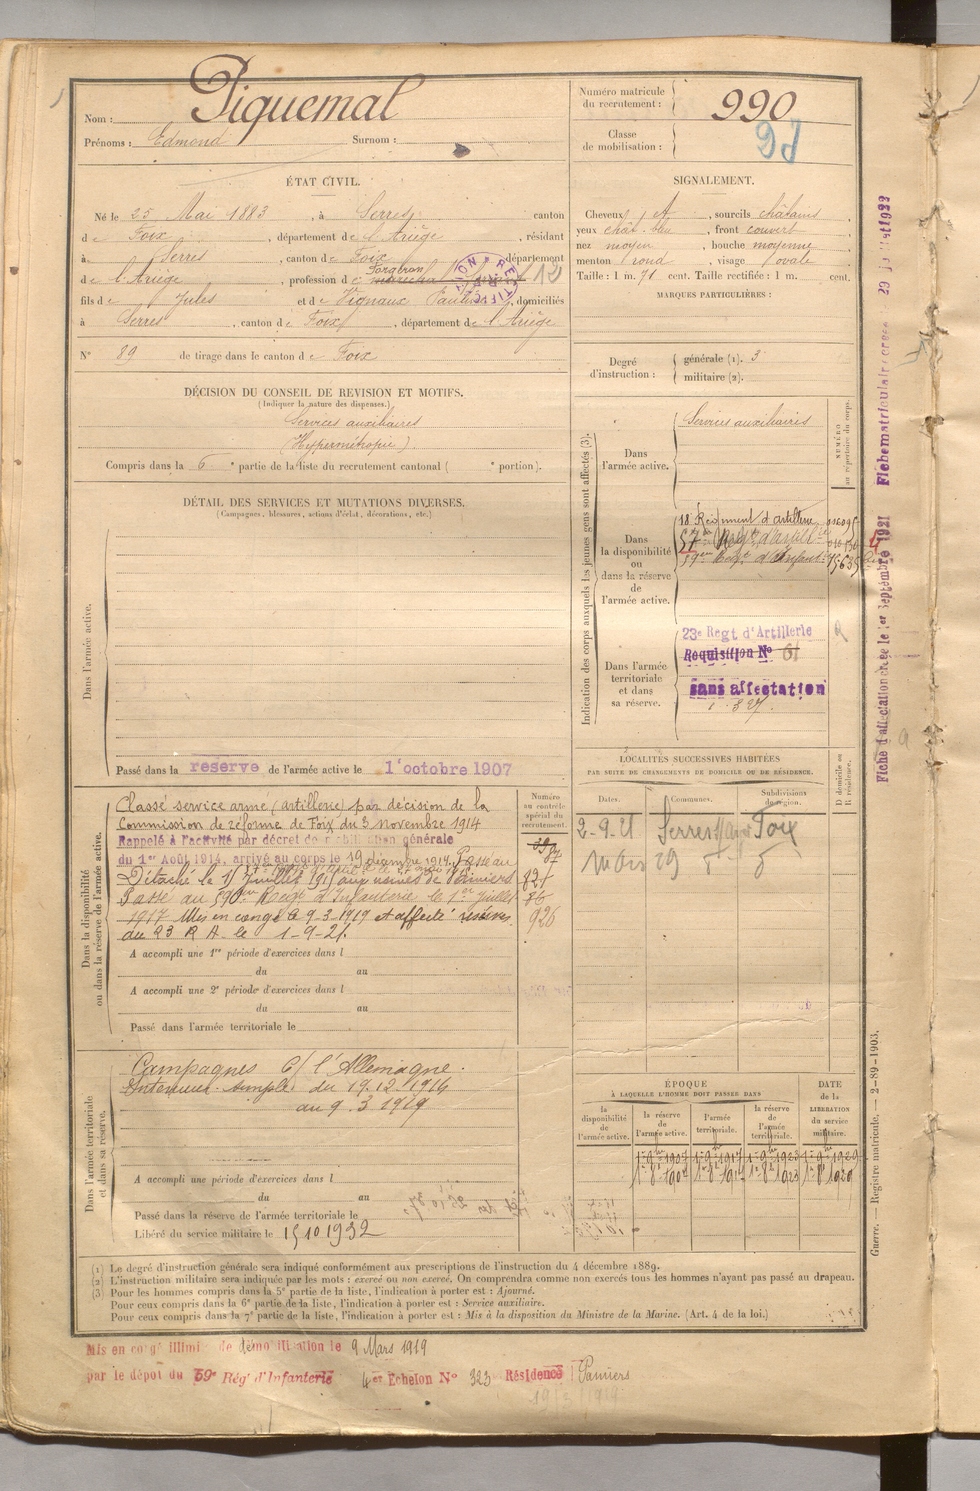 Nom : Piquemal
Prénoms : Edmond Surnom :
Numéro matricule du recrutement : 990
Classe de mobilisation :
ÉTAT CIVIL.
Né le 25 Mai 1883, à Serres, canton
de Foix, département de l'Ariège, résidant
à Serres, canton de Foix, département
de l'Ariège, profession de forgeron 12
RECTIFICATION
fils de Jules et de Vignaux Pauline, domiciliés
à Serres, canton de Foix, département de l'Ariège
N° 89 de tirage dans le canton de Foix
SIGNALEMENT.
Cheveux, sourcils châtains,
yeux, front couvert,
nez moyen, bouche moyenne,
menton rond, visage ovale.
Taille : 1 m. 71 cent. Taille rectifiée : 1 m. cent.
MARQUES PARTICULIÈRES :
Degré d'instruction : générale (1). 3
militaire (2).
DÉCISION DU CONSEIL DE REVISION ET MOTIFS.
(Indiquer la nature des dispenses.)
Services auxiliaires
(Hypermétropie)
Compris dans la 6e partie de la liste du recrutement cantonal ( e portion).
DÉTAIL DES SERVICES ET MUTATIONS DIVERSES.
(Campagnes, blessures, actions d'éclat, décorations, etc.)
Dans l'armée active.
Passé dans la reserve de l'armée active le 1er octobre 1907
Indication des corps auxquels les jeunes gens sont affectés (3).
NUMÉRO au répertoire du corps.
Dans l'armée active.
Services auxiliaires
Dans la disponibilité ou dans la réserve de l'armée active.
18 Régiment d'artillerie
57e Régt d'artillerie
59eme Régt d'Infanterie
Dans l'armée territoriale et dans sa réserve.
23e Regt d'Artillerie
Requisition N° 61
sans affectation
Dans la disponibilité ou dans la réserve de l'armée active.
Classé service armé (artillerie) par décision de la
Commission de réforme de Foix du 3 novembre 1914
Rappelé à l'activité par décret de mobilisation générale
du 1er Août 1914, arrivé au corps le 19 décembre 1914. Passé au
Détaché le 1er juillet 1915 aux usines de Pamiers
Passé au 59eme Régt d'Infanterie le 1er juillet
1917 Mis en congé le 9.3.1919 et affecté réserves
du 23 R A. le 1-9-21.
Numéro au contrôle spécial du recrutement.
926
A accompli une 1re période d'exercices dans l
du au
A accompli une 2e période d'exercices dans l
du au
Passé dans l'armée territoriale le
LOCALITÉS SUCCESSIVES HABITÉES
PAR SUITE DE CHANGEMENTS DE DOMICILE OU DE RÉSIDENCE.
Dates. Communes. Subdivisions de région. D domicile ou R résidence.
2-9-21 Serres Foix
Mars 29
Dans l'armée territoriale et dans sa réserve.
Campagnes C/ l'Allemagne.
Intérieur simple du 19.12.1914
au 9.3.1919
A accompli une période d'exercices dans l
du au
Passé dans la réserve de l'armée territoriale le
Libéré du service militaire le 15 10 1932
ÉPOQUE
À LAQUELLE L'HOMME DOIT PASSER DANS
la disponibilité de l'armée active. la réserve de l'armée active. l'armée territoriale. la réserve de l'armée territoriale. DATE de la LIBÉRATION du service militaire.
(1) Le degré d'instruction générale sera indiqué conformément aux prescriptions de l'instruction du 4 décembre 1889.
(2) L'instruction militaire sera indiquée par les mots : exercé ou non exercé. On comprendra comme non exercés tous les hommes n'ayant pas passé au drapeau.
(3) Pour les hommes compris dans la 5e partie de la liste, l'indication à porter est : Ajourné.
Pour ceux compris dans la 6e partie de la liste, l'indication à porter est : Service auxiliaire.
Pour ceux compris dans la 7e partie de la liste, l'indication à porter est : Mis à la disposition du Ministre de la Marine. (Art. 4 de la loi.)
Mis en congé illimité de démobilisation le 9 Mars 1919
par le dépôt du 59e Rég' d'Infanterie 4er Echelon N° 323 Résidence Pamiers
Guerre. — Registre matricule. — 2-89-1903.
Fiche d'affectation créée le 1er Septembre 1921 Fiche matriculaire 29 juillet 1922